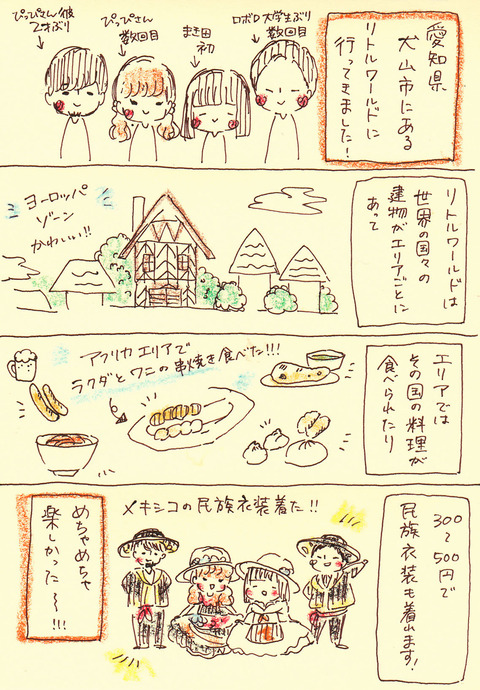 愛知県
犬山市にある
リトルワールドに
行ってきました!
ロボロ 大学生ぶり
数回目
まき田
初
ぴっぴさん
数回目
ぴっぴさん彼
2才ぶり
リトルワールドは
世界の国々の
建物がエリアごとに
あって
ヨーロッパ
ゾーン
かわいい!!
エリアでは
その国の料理が
食べられたり
アフリカエリアで
ラクダとワニの串焼き食べた!!!
300
〜500円で
民族衣装も着れます!
メキシコの民族衣装着た!!
めちゃめちゃ
楽しかった〜!!!